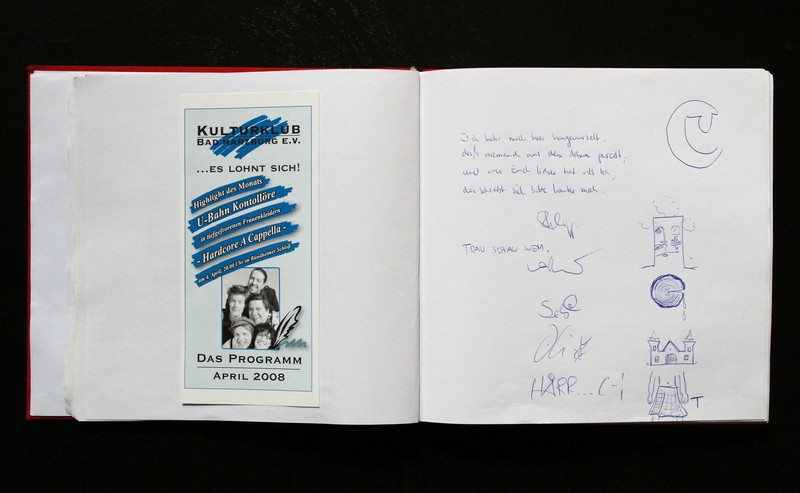 KULTURKLUB
BAD HARZBURG E.V.
...ES LOHNT SICH!
Highlight des Monats
U-Bahn Kontollöre
in tiefgefrorenen Frauenkleidern
- Hardcore A Cappella -
am 4. April, 20.00 Uhr im Bündheimer Schloß
DAS PROGRAMM
APRIL 2008
Ich habe mich hier hingewurzelt,
daß niemand aus dem Album purzelt,
und wer Euch lieber hat als ich,
der schreibt sich bitte hinter mich.
TRAU SCHAU WEM.
HÄPP...
T